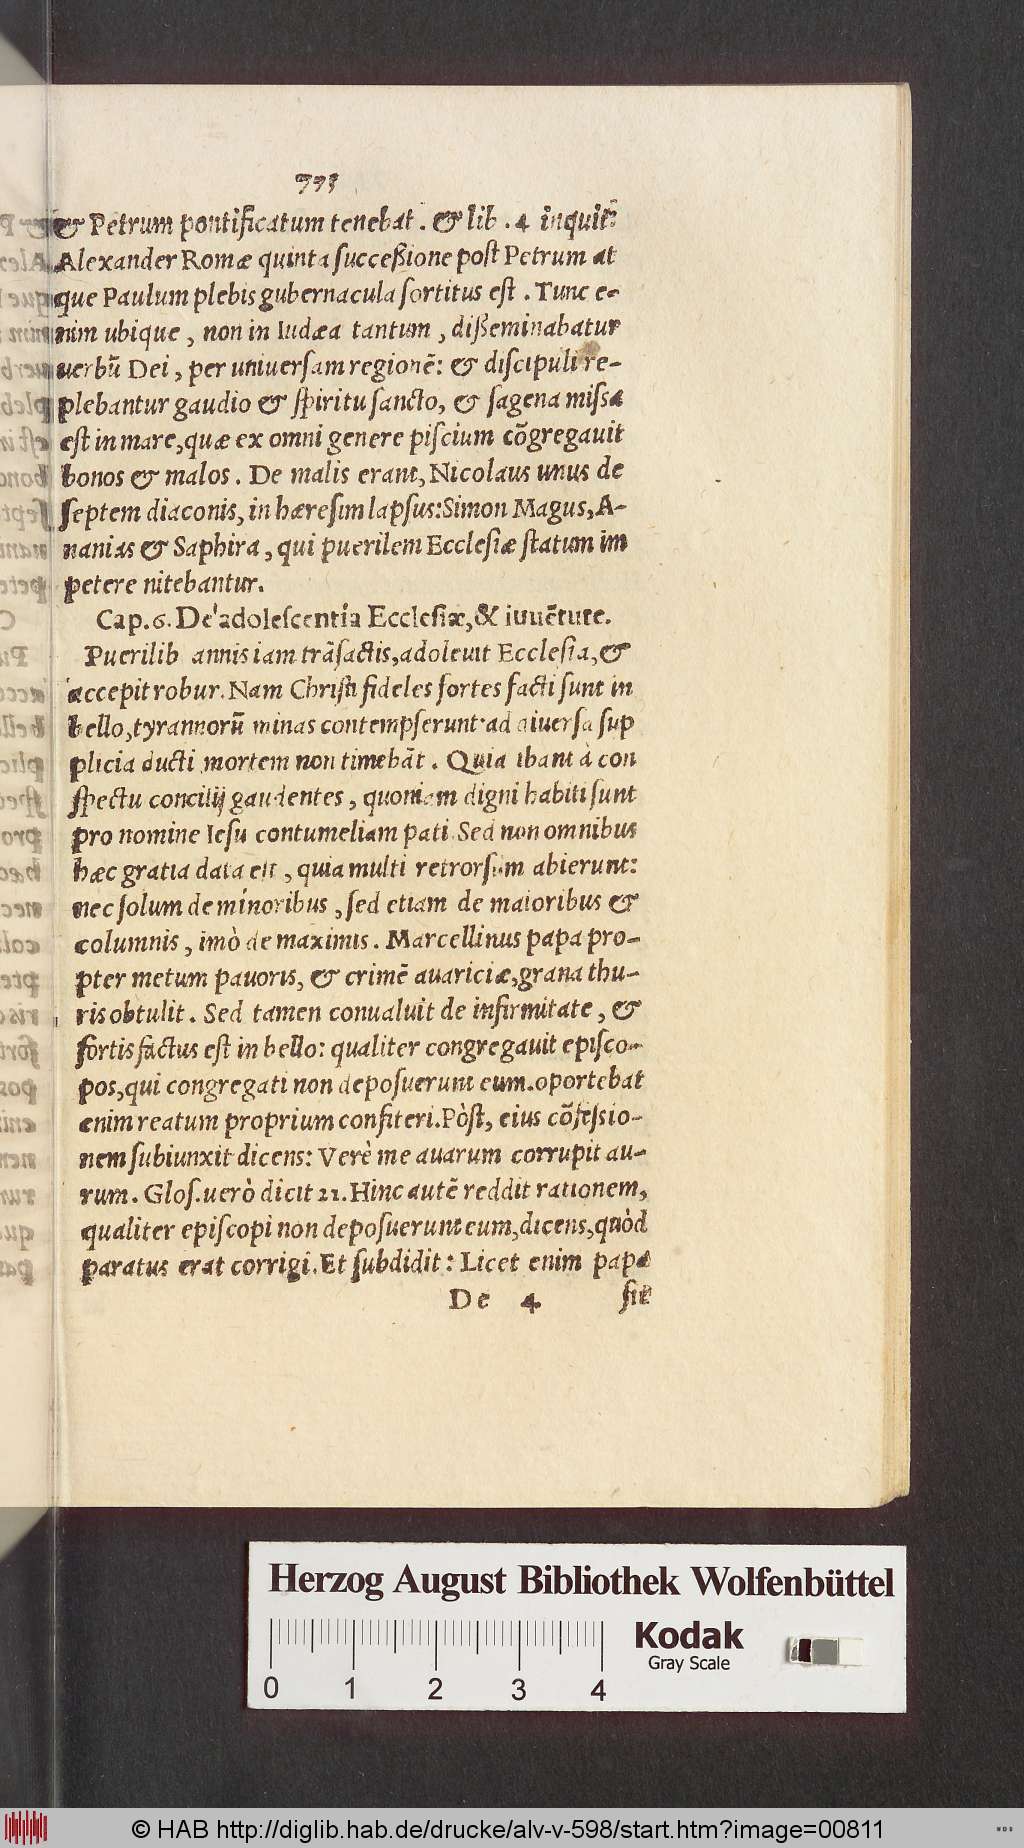 & Petrum pontificatum tenebat. & lib. 4 inquit:
Alexander Romæ quinta succeßione post Petrum at
que Paulum plebis gubernacula sortitus est. Tunc e-
nim ubique, non in Iudæa tantum, dißeminabatur
uerbũ Dei, per uniuersam regionẽ: & discipuli re-
plebantur gaudio & spiritu sancto, & sagena missa
est in mare, quæ ex omni genere piscium cõgregauit
bonos & malos. De malis erant, Nicolaus unus de
septem diaconis, in hæresim lapsus: Simon Magus, A-
nanias & Saphira, qui puerilem Ecclesiæ statum im
petere nitebantur.
Cap. 6. De adolescentia Ecclesiæ, & iuuẽtute.
Puerilib annis iam trãsactis, adoleuit Ecclesia, &
accepit robur. Nam Christi fideles fortes facti sunt in
bello, tyrannorũ minas contempserunt: ad diuersa sup
plicia ducti mortem non timebãt. Quia ibant à con
spectu concilij gaudentes, quoniam digni habiti sunt
pro nomine Iesu contumeliam pati. Sed non omnibus
hæc gratia data est, quia multi retrorsum abierunt:
nec solum de minoribus, sed etiam de maioribus &
columnis, imò de maximis. Marcellinus papa pro-
pter metum pauoris, & crimẽ auariciæ, grana thu-
ris obtulit. Sed tamen conualuit de infirmitate, &
fortis factus est in bello: qualiter congregauit episco-
pos, qui congregati non deposuerunt eum. oportebat
enim reatum proprium confiteri. Pòst, eius cõfeßio-
nem subiunxit dicens: Verè me auarum corrupit au-
rum. Glos. uerò dicit 21. Hinc autẽ reddit rationem,
qualiter episcopi non deposuerunt eum, dicens, quòd
paratus erat corrigi. Et subdidit: Licet enim papa
De 4 sit
Herzog August Bibliothek Wolfenbüttel
0 1 2 3 4
Kodak
Gray Scale
© HAB http://diglib.hab.de/drucke/alv-v-598/start.htm?image=00811